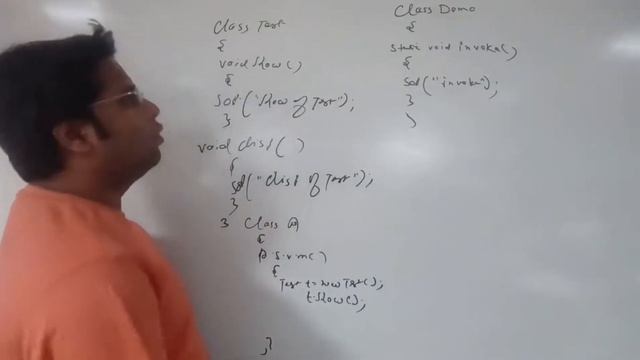 Class Test
{
void Show()
{
Sop("Show of Test");
}
void disp()
{
Sop("disp of Test");
}
} Class A
{
P.S.V.m()
{
Test t=new Test();
t.Show();
}
Class Demo
{
Static void invoke()
{
Sop("invoke");
}
}